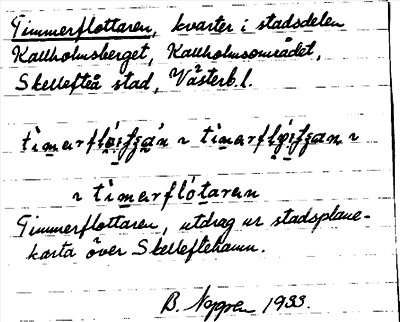 Timmerflottaren, kvarter i stadsdelen
Kallholmsberget, Kallholmsområdet,
Skellefteå stad, Västerb.l.
timarflótaran
Timmerflottaren, utdrag ur stadsplane-
karta över Skelleftehamn.
B. 1933.